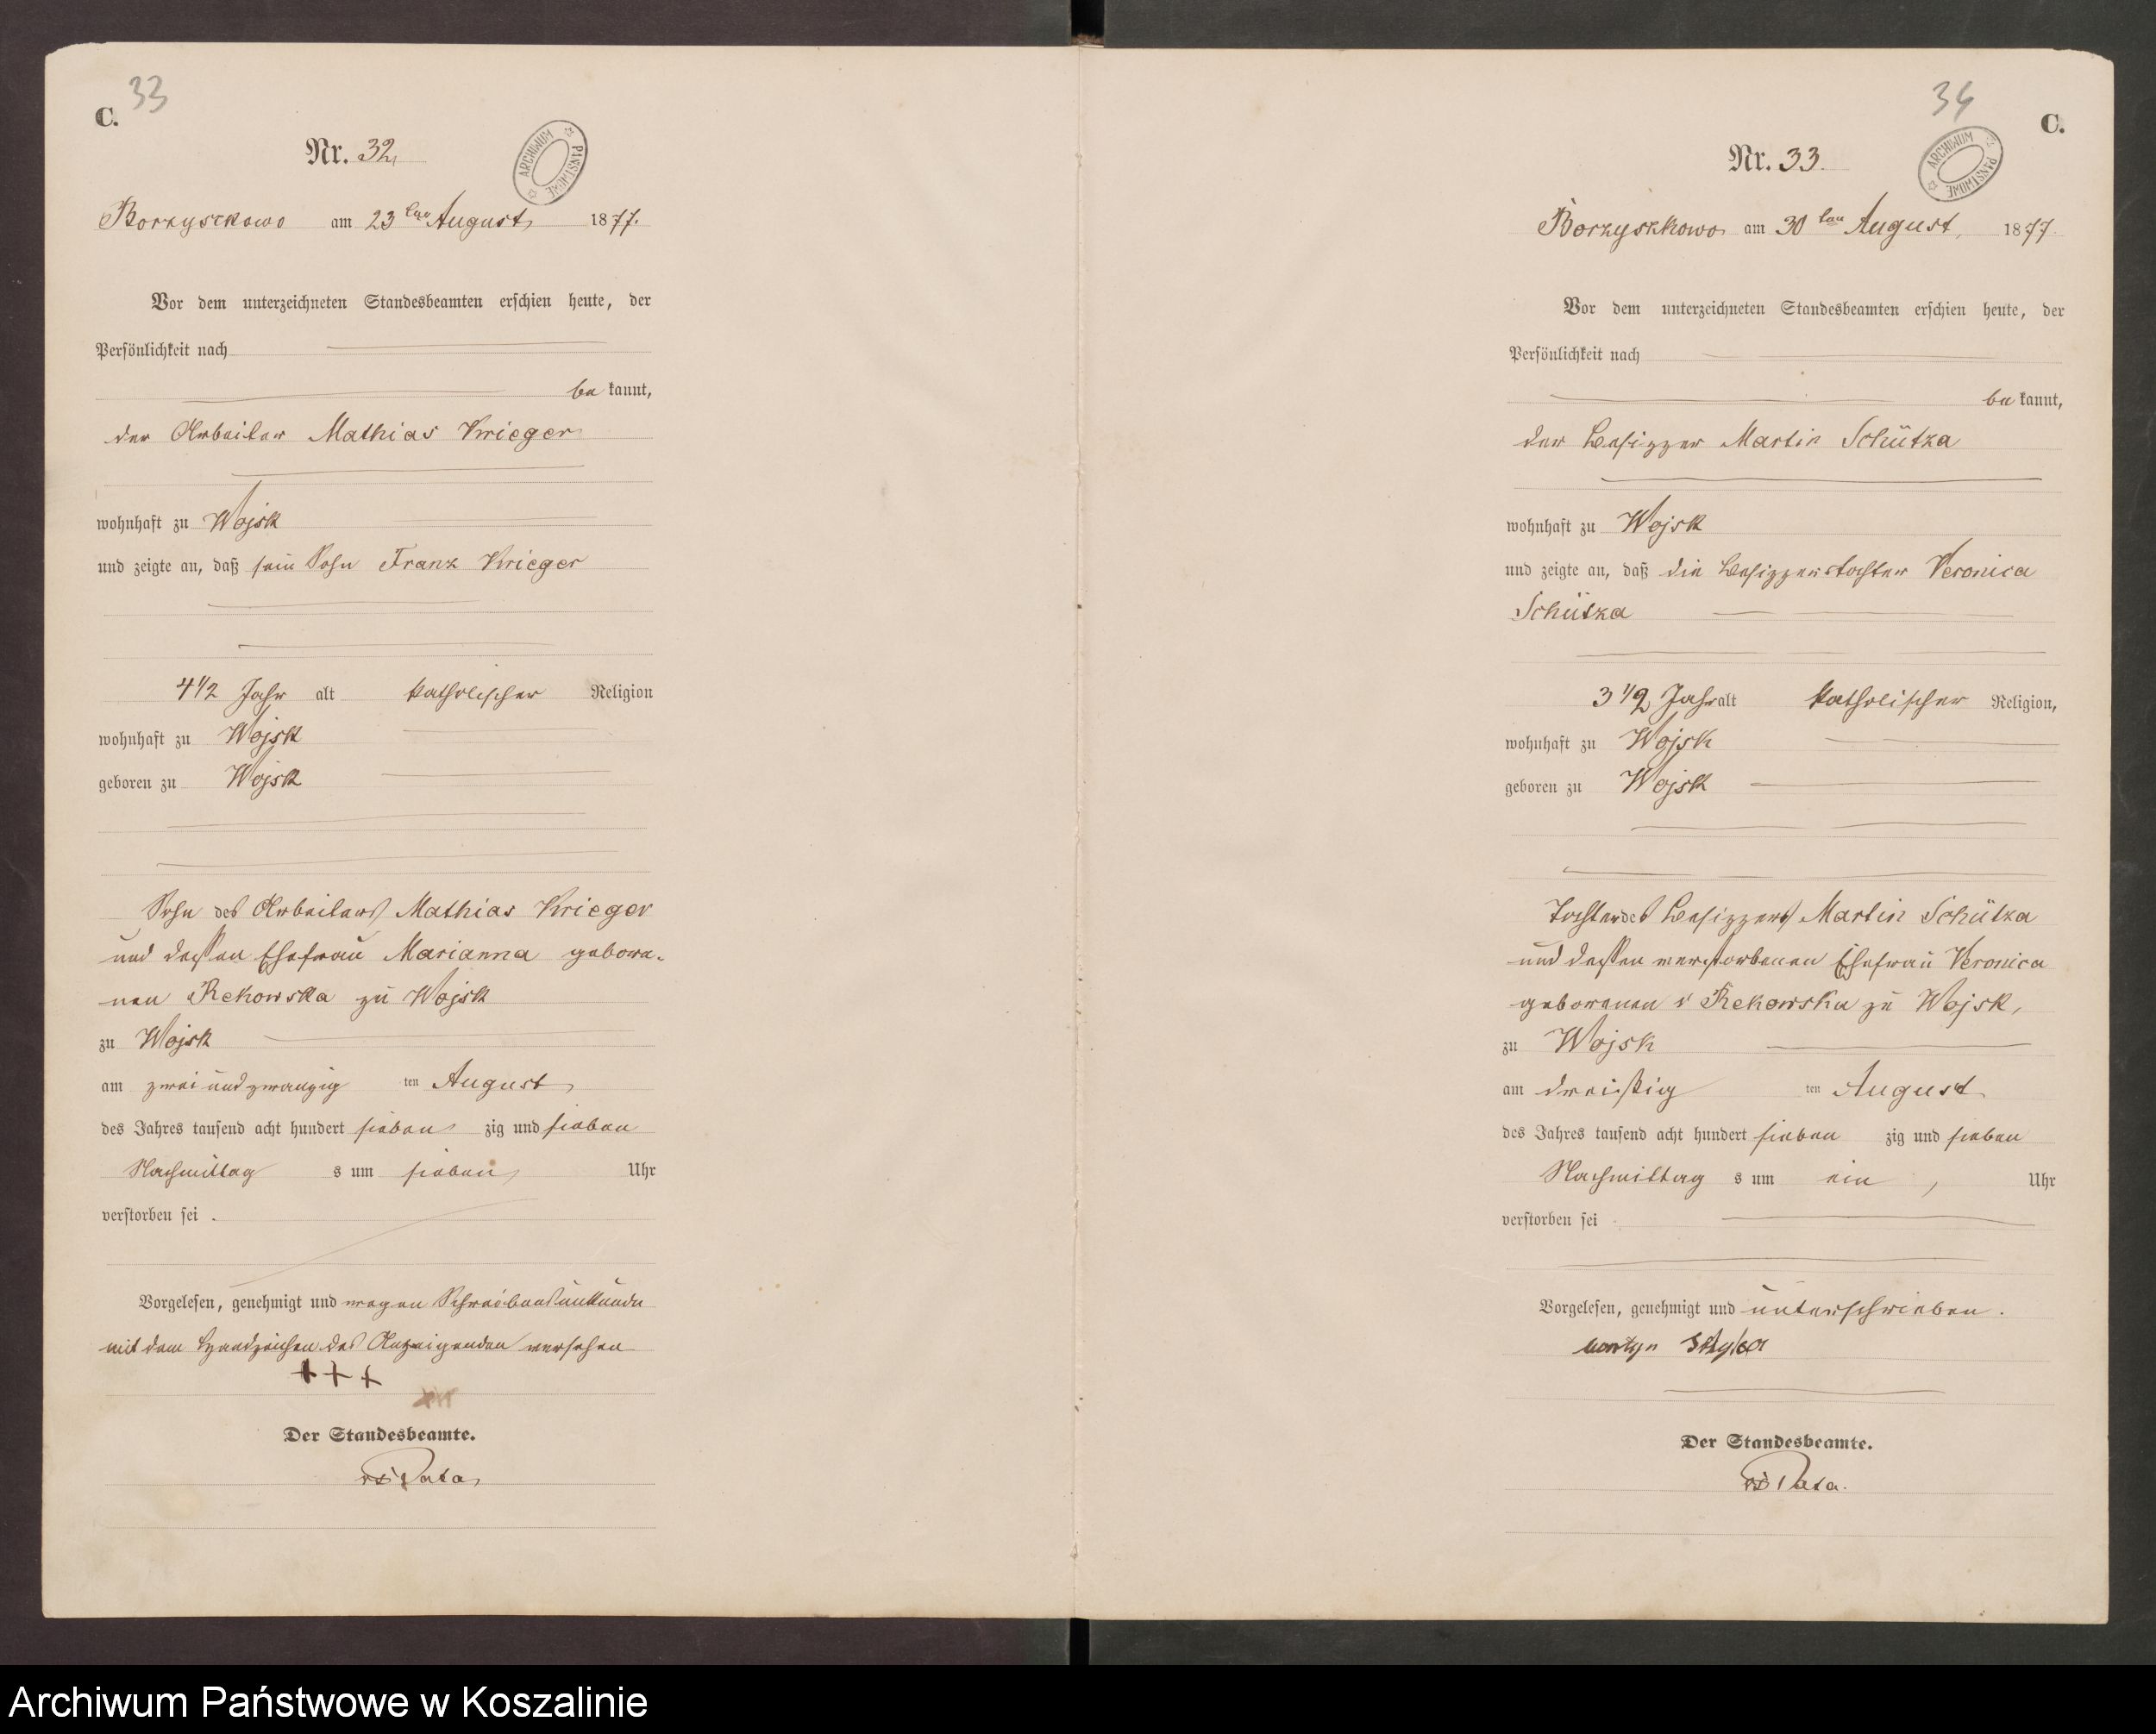 33
C.
Nr. 32,
ARCHIWUM PAŃSTWOWE
Borzyszkowo am 23 ten August, 1877.
Vor dem unterzeichneten Standesbeamten erschien heute, der
Persönlichkeit nach
be kannt,
der Arbeiter Mathias Krieger
wohnhaft zu Wojsk
und zeigte an, daß sein Sohn Franz Krieger
4 1/2 Jahr alt katholischer Religion
wohnhaft zu Wojsk
geboren zu Wojsk
Sohn des Arbeiters Mathias Krieger
und dessen Ehefrau Marianna gebore-
nen Rekowska zu Wojsk
zu Wojsk
am zwei und zwanzig ten August,
des Jahres tausend acht hundert sieben zig und sieben
Nachmittag s um sieben, Uhr
verstorben sei .
Vorgelesen, genehmigt und wegen Schreibensunkunde
mit dem Handzeichen des Anzeigenden versehen
+ + +
Der Standesbeamte.
34
C.
Nr. 33.
ARCHIWUM PAŃSTWOWE
Borzyszkowo am 30 ten August, 1877
Vor dem unterzeichneten Standesbeamten erschien heute, der
Persönlichkeit nach
be kannt,
der Besizzer Martin Schütza
wohnhaft zu Wojsk
und zeigte an, daß die Besizzerstochter Veronica
Schütza
3 1/2 Jahr alt katholischer Religion,
wohnhaft zu Wojsk
geboren zu Wojsk
Tochter des Besizzers Martin Schütza
und dessen verstorbenen Ehefrau Veronica
geborenen v Rekowska zu Wojsk,
zu Wojsk
am dreißig ten August
des Jahres tausend acht hundert sieben zig und sieben
Nachmittag s um ein , Uhr
verstorben sei
Vorgelesen, genehmigt und unterschrieben .
Der Standesbeamte.
Archiwum Państwowe w Koszalinie